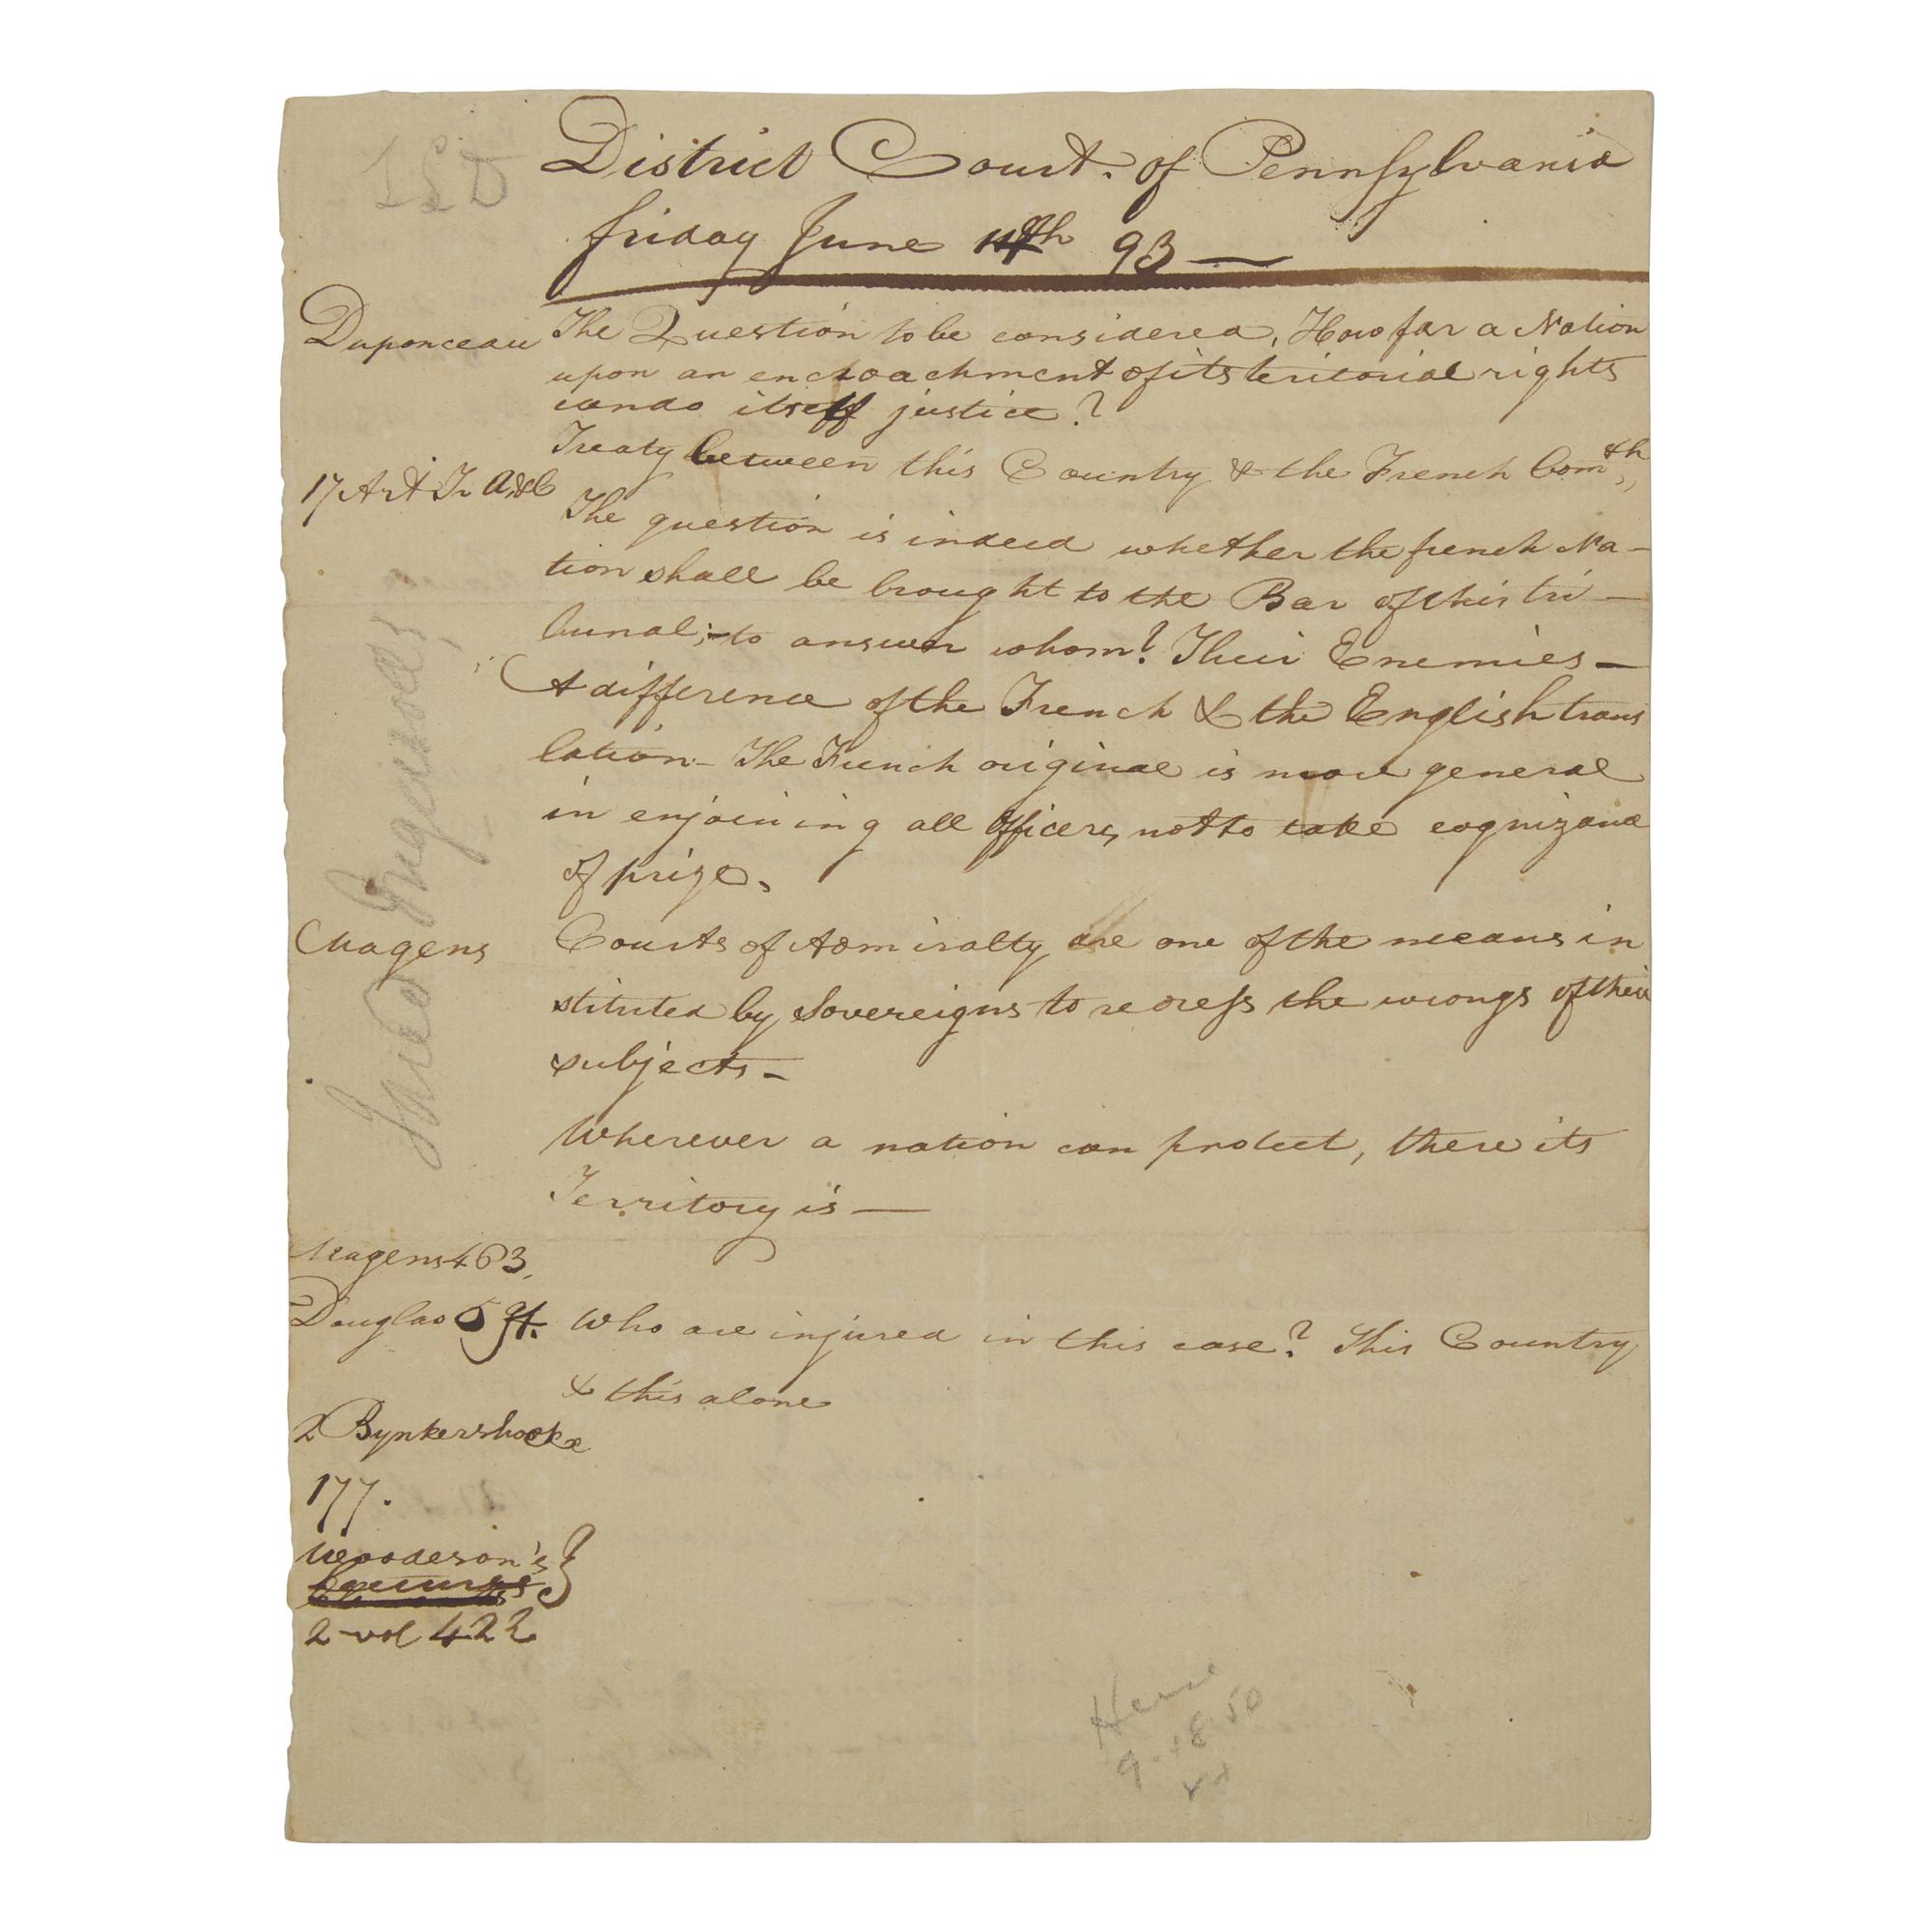 District Court. of Pennsylvania
friday June 14th 93 —
Duponceau The Question to be considered, How far a Nation
upon an encroachment of its teritorial rights
can do itself justice?
Treaty between this Country & the French Comth,,
17 Art Tr A&C
The question is indeed whether the french Na-
tion shall be brought to the Bar of this tri-
bunal; - to answer whom? Their Enemies -
A difference of the French & the English trans
lation - The French original is more general
in enjoining all officers, not to take cognizance
of prize.
Magens Courts of Admiralty are one of the means in
stituted by Sovereigns to redress the wrongs of their
subjects -
Wherever a nation can protect, there its
Territory is —
Magens 463,
Douglas Who are injured in this case? This Country
& this alone
2 Bynkershoek
177.
Wooddeson's }
2 vol 422
Jared Ingersoll
9-18-50